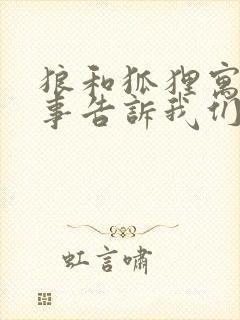 狼和狐狸寓
事告訴我们
虹言啸